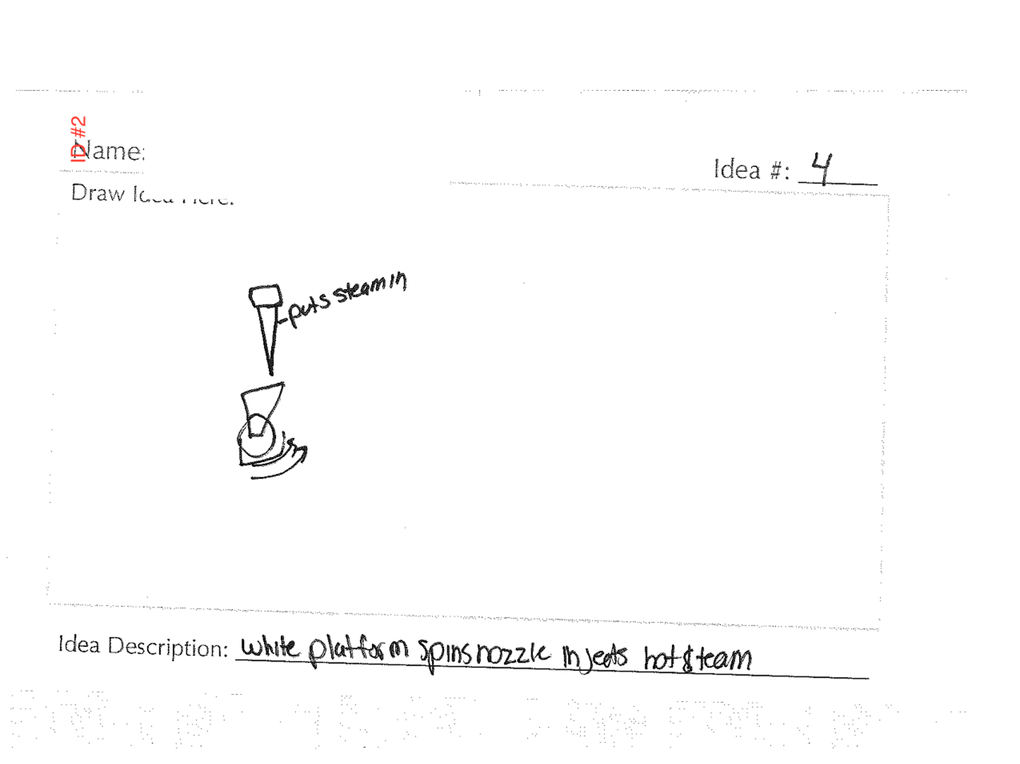 ID #2
Name:
Idea #: 4
Draw Idea Here:
puts steam in
Idea Description: white platform spins nozzle injects hot steam